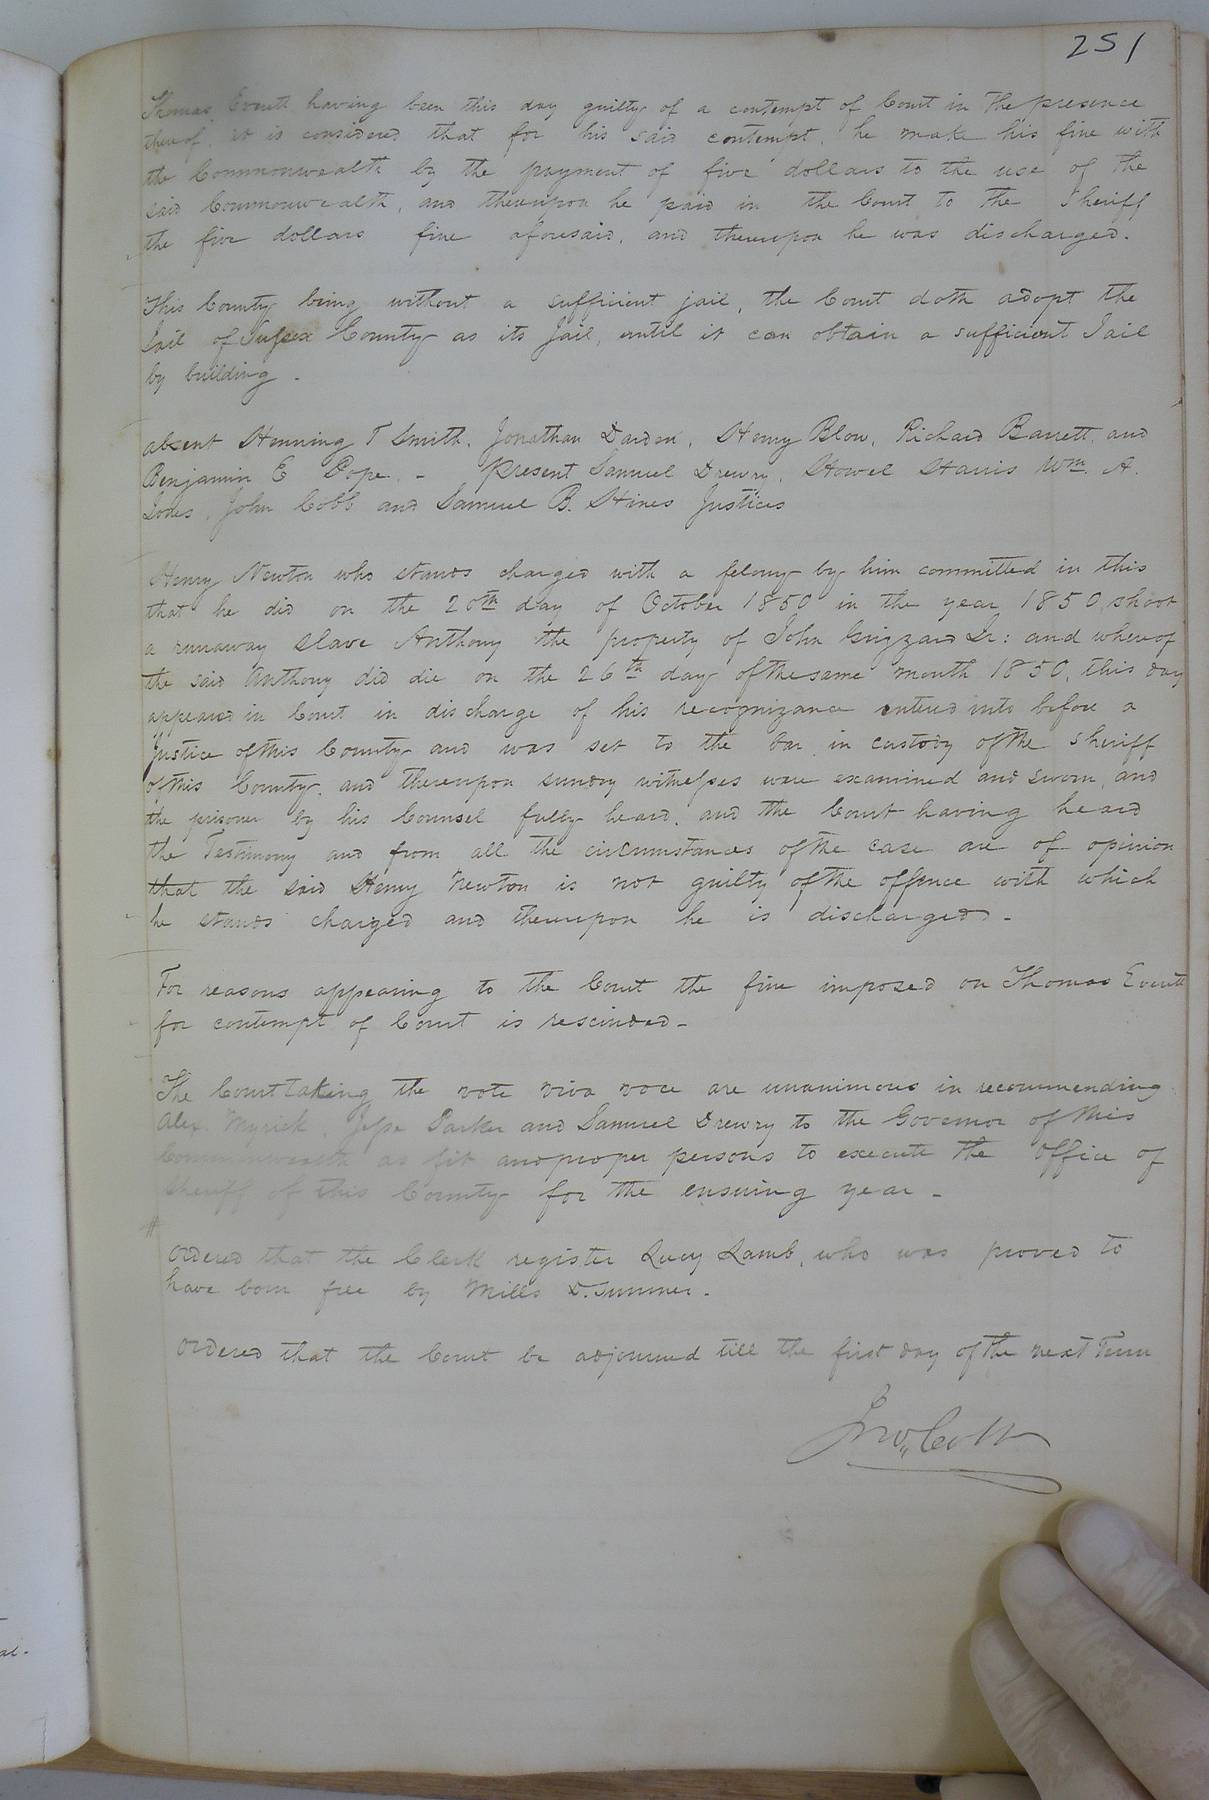 251
Thomas Everett having been this day guilty of a contempt of Court in the presence
thereof, it is considered that for his said contempt, he make his fine with
the Commonwealth by the payment of five dollars to the use of the
said Commonwealth, and thereupon he paid in the Court to the Sheriff
the five dollars fine aforesaid, and thereupon he was discharged.
This County being without a sufficient jail, the Court doth adopt the
Jail of Sussex County as its Jail, until it can obtain a sufficient Jail
by building.
absent Henning T Smith, Jonathan Darden, Henry Blow, Richard Barrett and
Benjamin E Pope. - Present Samuel Drewry, Howel Harris Wm. A.
Jones, John Cobb and Samuel B. Hines Justices
Henry Newton who stands charged with a felony by him committed in this
that he did on the 20th day of October 1850 in the year 1850, shoot
a runaway slave Anthony the property of John Grizzard Sr: and whereof
the said Anthony did die on the 26th day of the same month 1850, this day
appeared in Court in discharge of his recognizance entered into before a
Justice of this County and was set to the bar in custody of the sheriff
of this County, and thereupon sundry witnesses were examined and sworn, and
the prisoner by his Counsel fully heard, and the Court having heard
the Testimony and from all the circumstances of the case are of opinion
that the said Henry Newton is not guilty of the offence with which
he stands charged and thereupon he is discharged -
For reasons appearing to the Court the fine imposed on Thomas Everett
for contempt of Court is rescinded -
The Court taking the vote viva voce are unanimous in recommending
Alex. Myrick, Jesse Parker and Samuel Drewry to the Governor of this
Commonwealth as fit and proper persons to execute the Office of
Sheriff of this County for the ensuing year -
#
Ordered that the Clerk register Lucy Lamb, who was proved to
have born free by Mills D. Sumner.
Ordered that the Court be adjourned till the first day of the next Term
Jno. Cobb